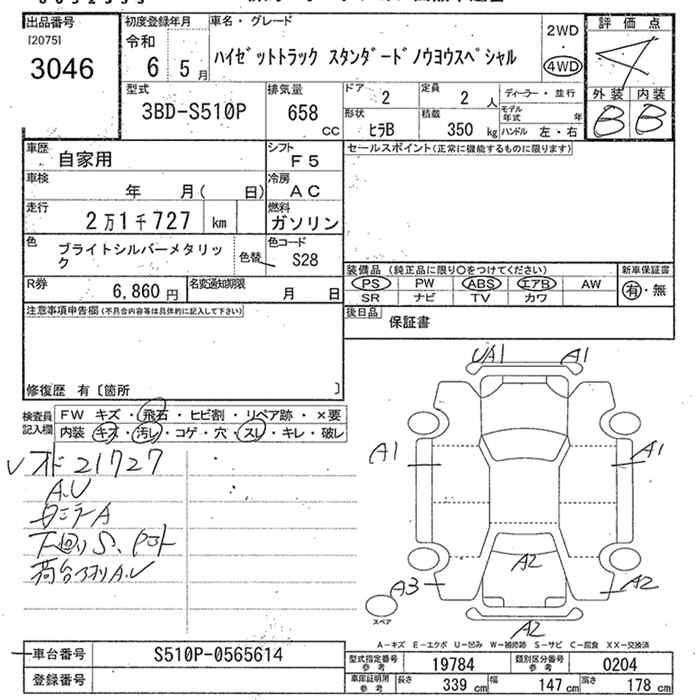 出品番号
[2075]
3046
初度登録年月
令和
6 5月
車名・グレード
ハイゼットトラック スタンダードノウヨウスペシャル
2WD
・
4WD
評価点
4
外装 内装
B B
型式
3BD-S510P
排気量
658
CC
ドア
2
定員
2 人
形状
ヒラB
積載
350 kg
ディーラー・並行
モデル年式 年
ハンドル 左・右
車歴
自家用
シフト
F5
車検
年 月( 日)
冷房
AC
走行
2万1千727 km
燃料
ガソリン
色
ブライトシルバーメタリック
色替
色コード
S28
R券
6,860 円
名変通知期限
月 日
セールスポイント(正常に機能するものに限ります)
装備品 (純正品に限り○をつけてください)
PS PW ABS エアB AW
SR ナビ TV カワ
新車保証書
有・無
後日品
保証書
注意事項申告欄(不具合内容等は具体的に記入して下さい)
修復歴 有〔箇所 〕
検査員記入欄
FW キズ・飛石・ヒビ割・リペア跡・×要
内装 キズ・汚レ・コゲ・穴・スレ・キレ・破レ
オド21727
A.U
下回りS.
荷台 A.U
UA1 A1
A1 A1
A2
A3 A2
A2
スペア
A-キズ E-エクボ U-凹み W-補修跡 S-サビ C-腐食 XX-交換済
車台番号
S510P-0565614
登録番号
型式指定番号 参考
19784
類別区分番号 参考
0204
車庫証明用 参考
長さ 339 cm
幅 147 cm
高さ 178 cm